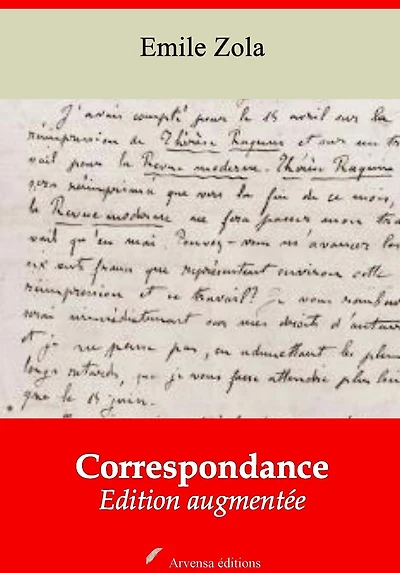 Emile Zola
J'avais compté pour le 15 avril sur la
réimpression de Thérèse Raquin et sur un tra
vail pour la Revue moderne. Thérèse Raquin
sera réimprimée que vers la fin de ce mois,
la Revue moderne ne fera passer mon tra
vail qu'en mai. Pouvez-vous m'avancer les
six cents francs que représentent environ cette
réimpression et ce travail? Je vous rembour
serai immédiatement sur mes droits d'auteur
et je ne pense pas, en admettant les plus
longs retards, que je vous fasse attendre plus loin
que le 15 juin.
Correspondance
Edition augmentée
Arvensa éditions